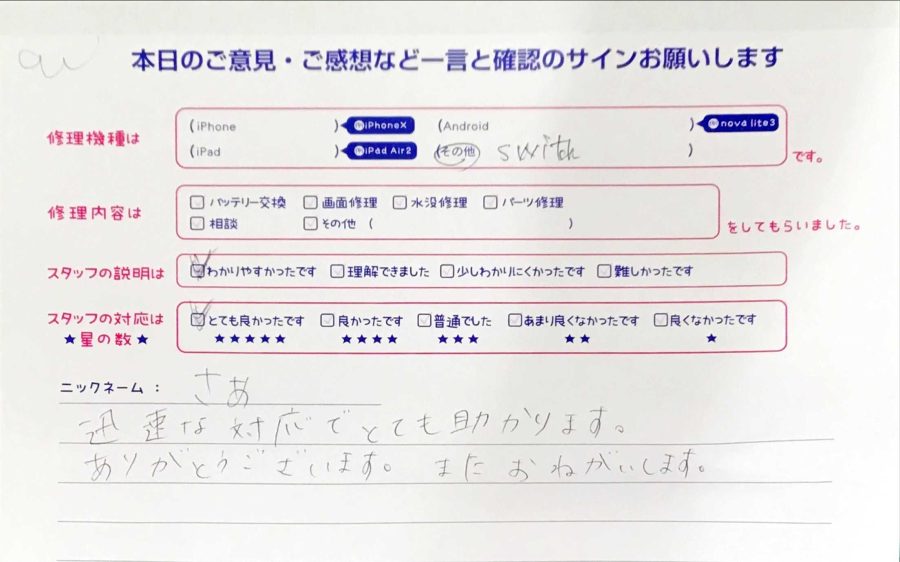 本日のご意見・ご感想など一言と確認のサインお願いします
修理機種は
(iPhone ) iPhoneX (Android ) nova lite3
(iPad ) iPad Air2 (その他 swith ) です。
修理内容は
バッテリー交換 画面修理 水没修理 パーツ修理
相談 その他 ( )
をしてもらいました。
スタッフの説明は わかりやすかったです 理解できました 少しわかりにくかったです 難しかったです
スタッフの対応は とても良かったです 良かったです 普通でした あまり良くなかったです 良くなかったです
★星の数★ ★★★★★ ★★★★ ★★★ ★★ ★
ニックネーム： さあ
迅速な対応でとても助かります。
ありがとうございます。またおねがいします。